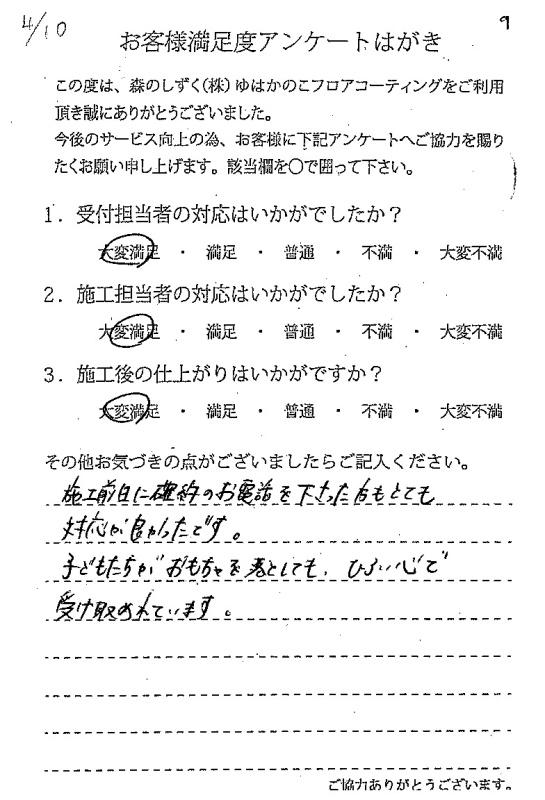 4/10
9
お客様満足度アンケートはがき
この度は、森のしずく(株)ゆはかのこフロアコーティングをご利用
頂き誠にありがとうございました。
今後のサービス向上の為、お客様に下記アンケートへご協力を賜り
たくお願い申し上げます。該当欄を〇で囲って下さい。
1. 受付担当者の対応はいかがでしたか?
大変満足 ・ 満足 ・ 普通 ・ 不満 ・ 大変不満
2. 施工担当者の対応はいかがでしたか?
大変満足 ・ 満足 ・ 普通 ・ 不満 ・ 大変不満
3. 施工後の仕上がりはいかがですか?
大変満足 ・ 満足 ・ 普通 ・ 不満 ・ 大変不満
その他お気づきの点がございましたらご記入ください。
施工前日に確認のお電話を下さった方もとても
対応が良かったです。
子どもたちがおもちゃを落としても、ひろい心で
受け取められています。
ご協力ありがとうございます。